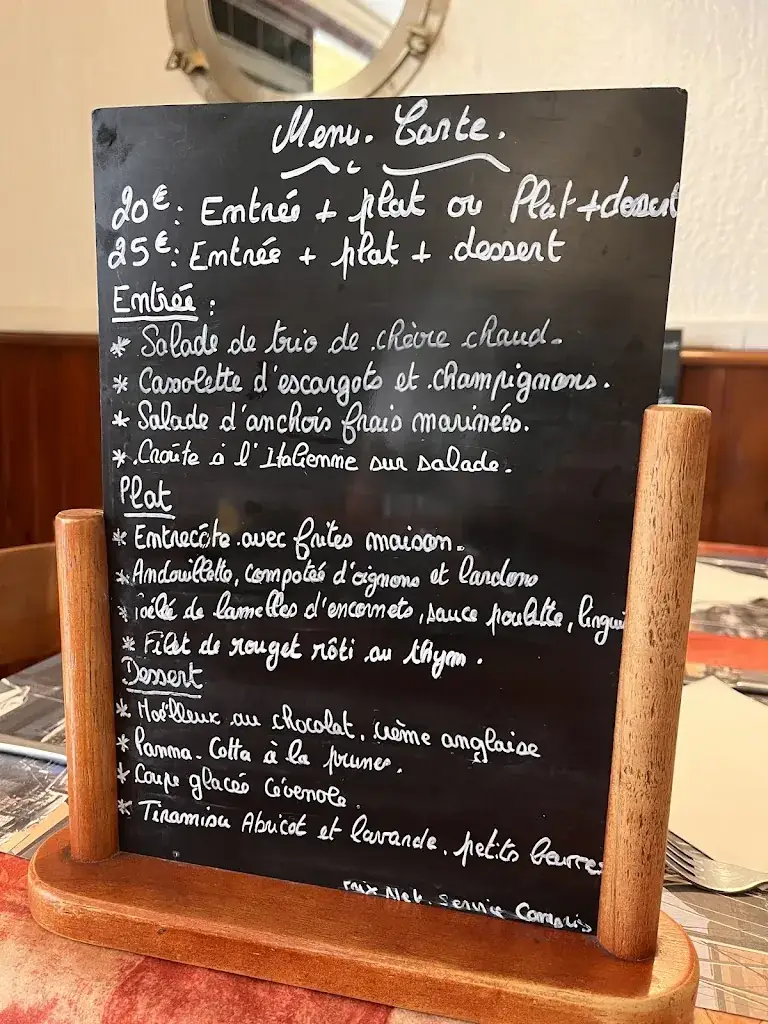 Menu. Carte.
20€: Entrée + plat ou Plat+dessert
25€: Entrée + plat + dessert
Entrée :
* Salade de trio de chèvre chaud.
* Cassolette d'escargots et champignons.
* Salade d'anchois frais marinées.
* Croûte à l'Italienne sur salade.
Plat
* Entrecôte avec frites maison.
* Andouillette, compotée d'oignons et lardons
* Poêlé de lamelles d'encornets, sauce poulette, lingui
* Filet de rouget rôti au thym.
Dessert
* Moëlleux au chocolat, crème anglaise
* Panna-Cotta à la prunes.
* Coupe glacée Cévenole.
* Tiramisu Abricot et lavande, petits
Prix Net. Service Compris